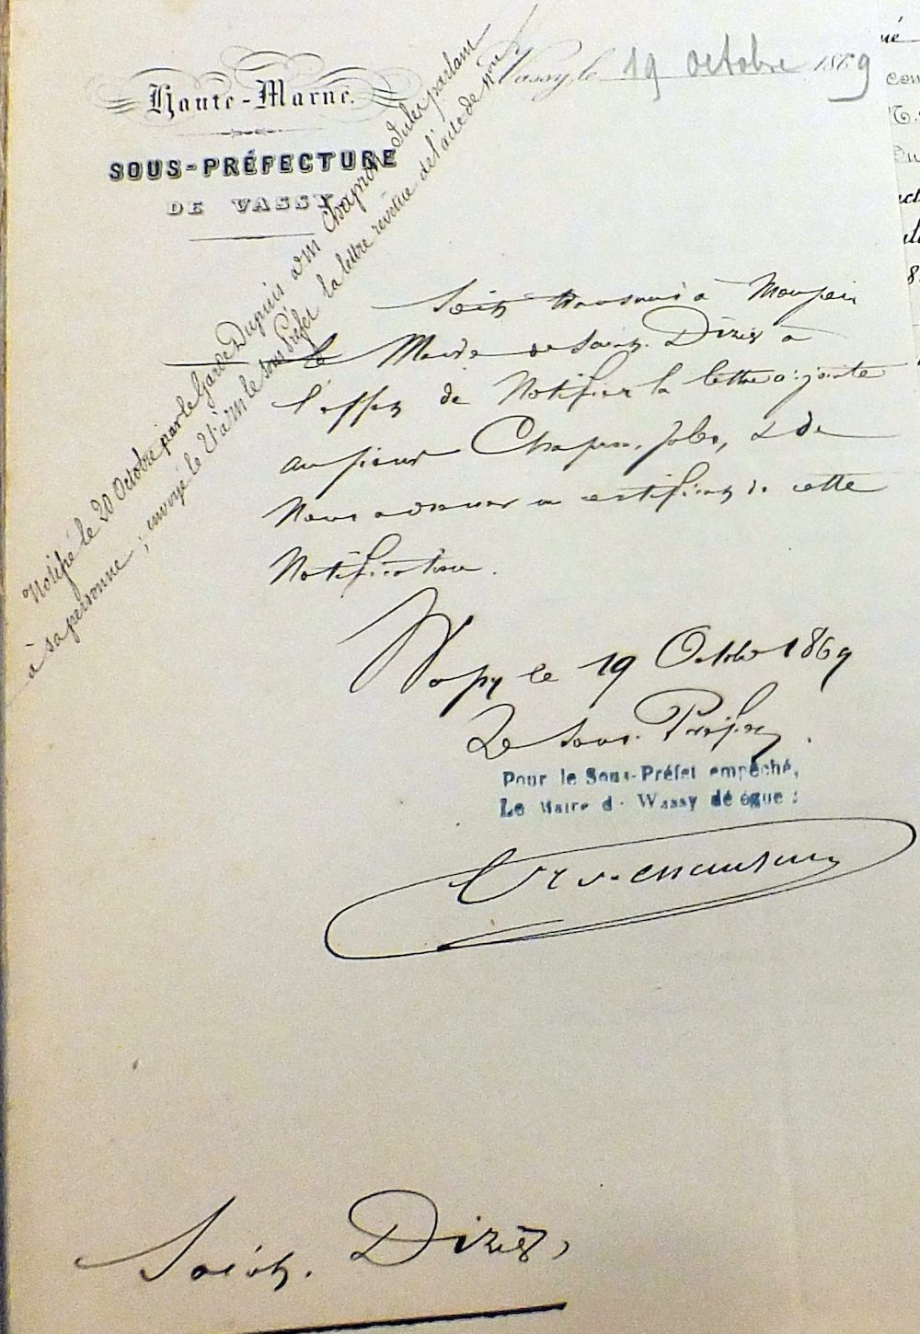 Haute-Marne.
SOUS-PRÉFECTURE
DE VASSY
Vassy, le 19 octobre 1869
Notifié le 20 Octobre par le Garde Dupuis à Mr Chapron Jules parlant
à sa personne ; envoyé le 21 à Mr le sous Préfet la lettre revêtue de l'acte de
Soit transmis à Monsieur
le Maire de Saint-Dizier à
l'effet de Notifier la lettre ci-jointe
au sieur Chapron, Jules, & de
Nous adresser un certificat de cette
Notification.
Vassy le 19 Octobre 1869
Le Sous-Préfet.
Pour le Sous-Préfet empêché,
Le Maire de Wassy délégué :
Saint-Dizier